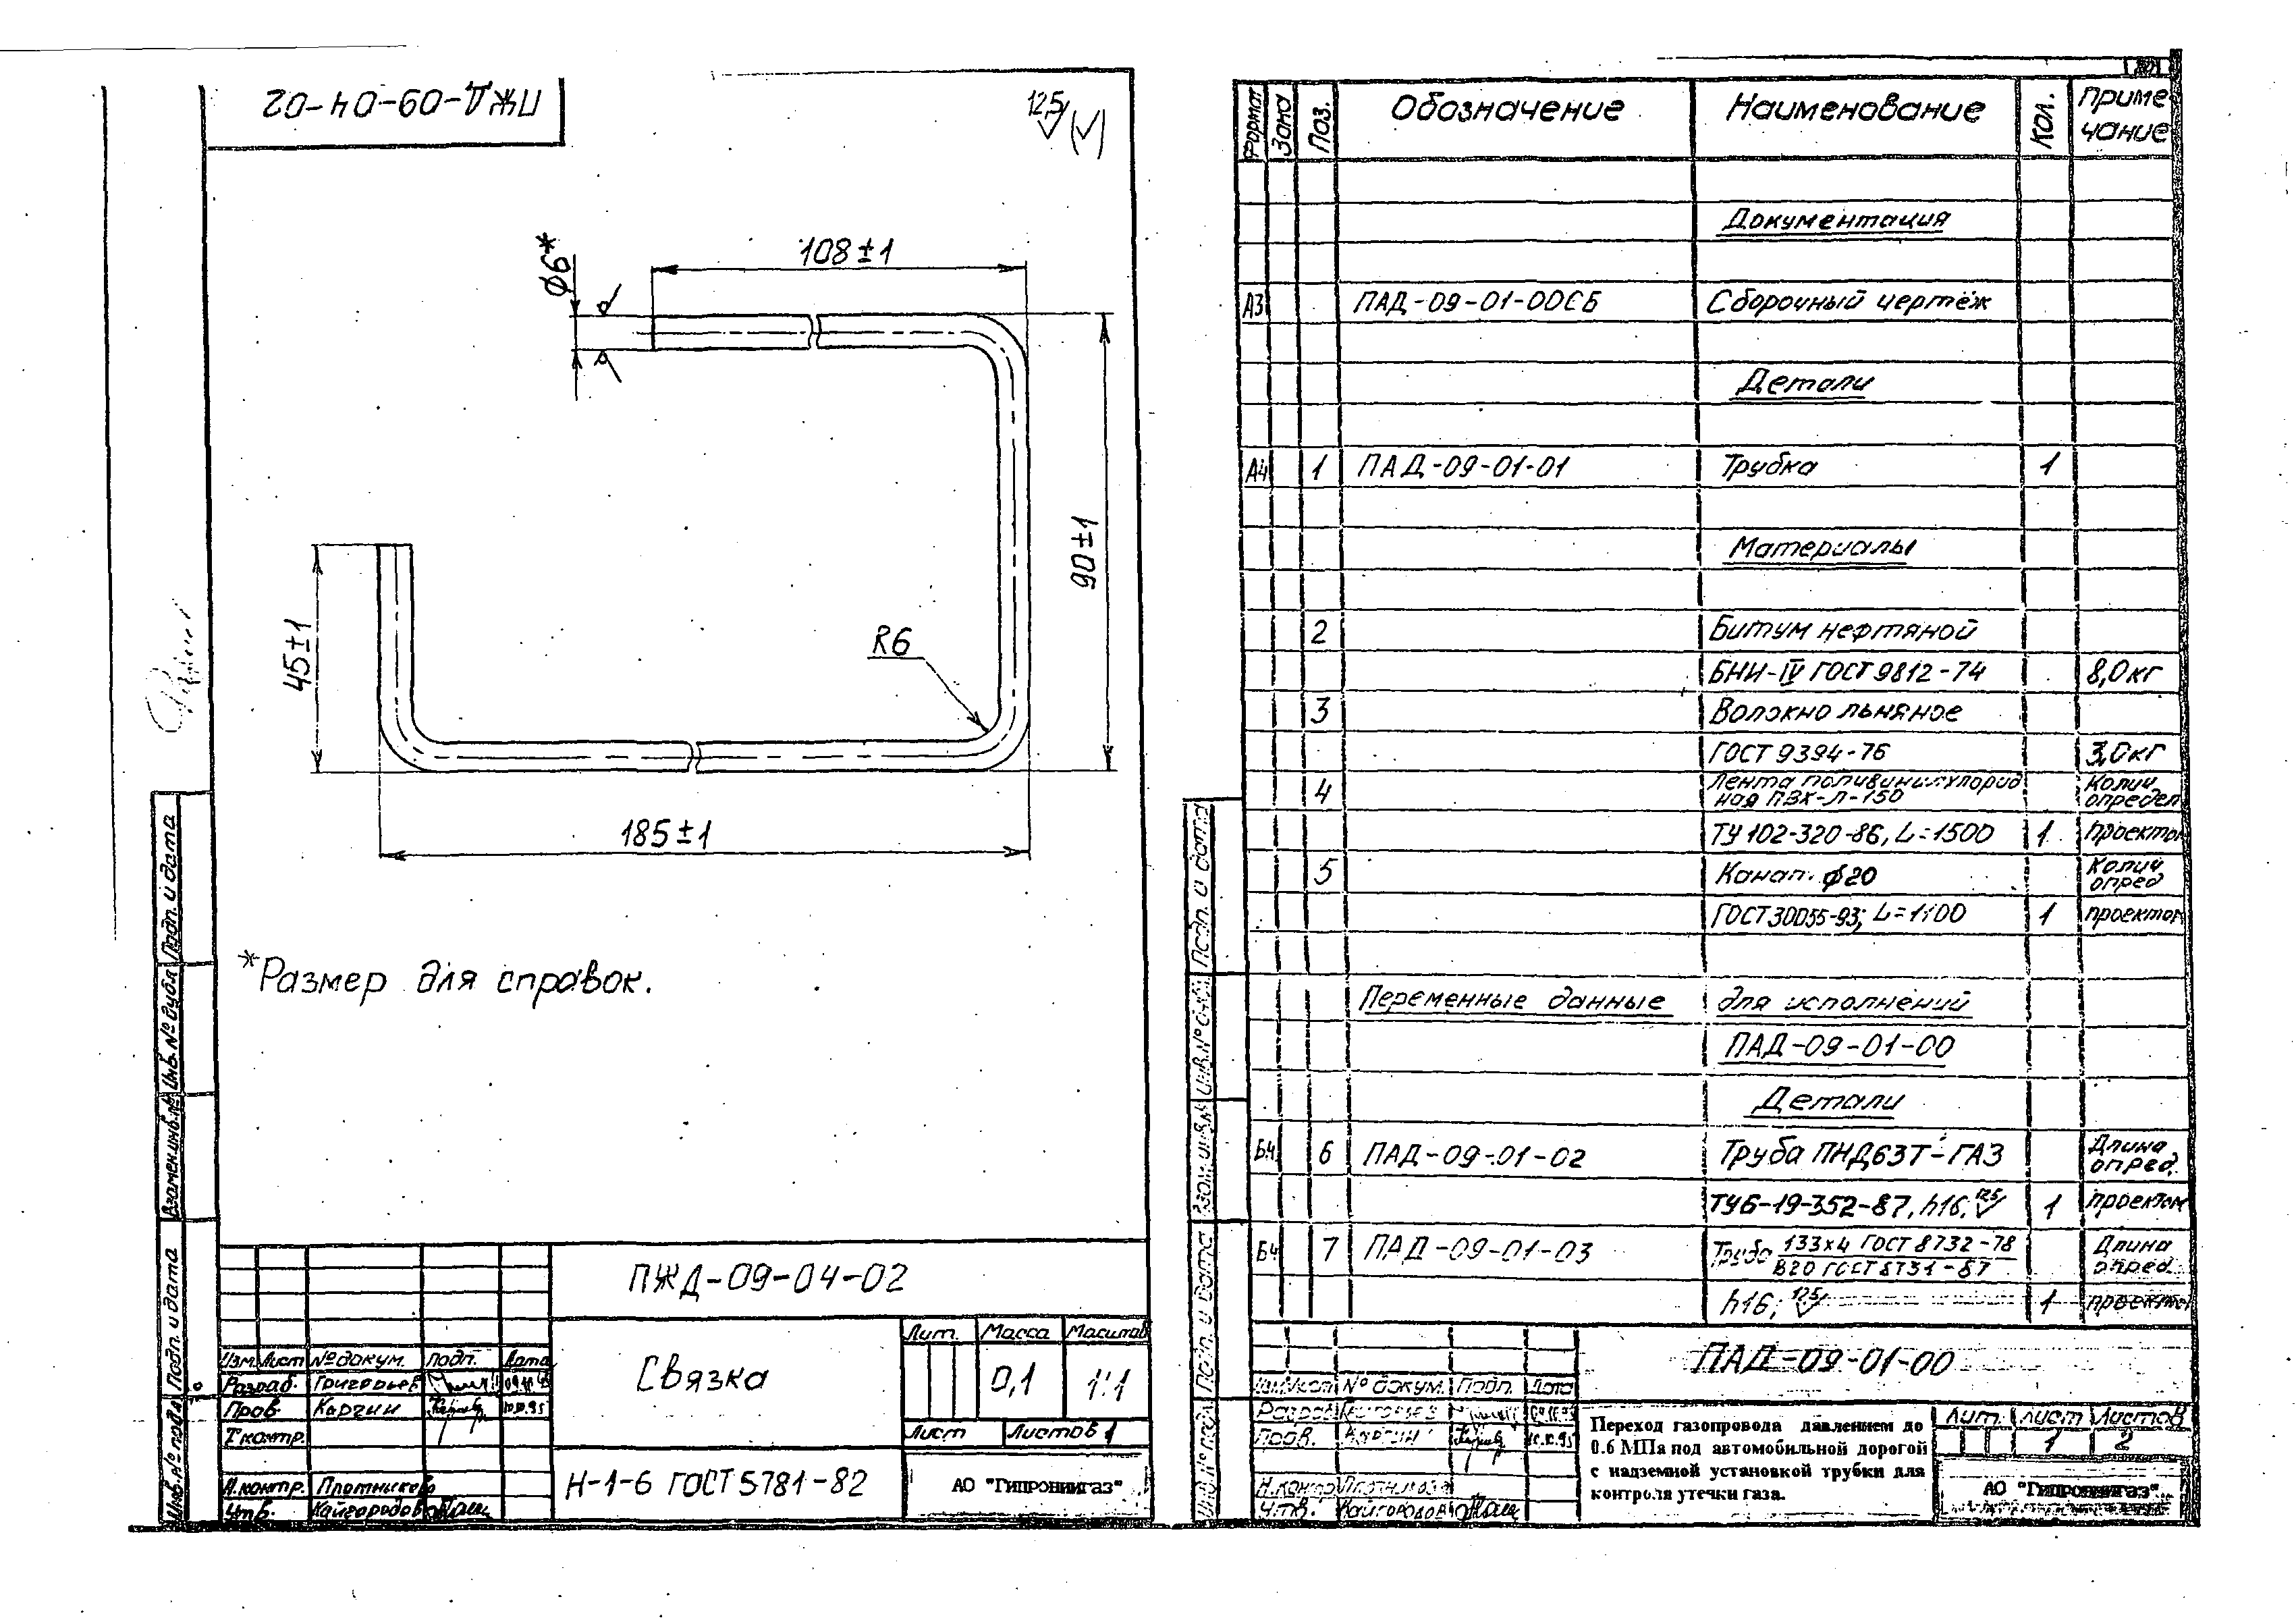 ПЖД-09-04-02
12,5 (√)
108±1
Ø6*
90±1
R6
45±1
185±1
*Размер для справок.
Подп. и дата
Инв.№ дубл.
Взамен инв.№
Подп. и дата
Инв.№ подл.
ПЖД-09-04-02
Связка
Лит. Масса Масштаб
0,1 1:1
Лист Листов 1
Изм. Лист № докум. Подп. Дата
Разраб. Григорьев
Пров. Каргин 10.10.95
Т.контр.
Н.контр. Плотников
Утв. Кайгородов
Н-1-6 ГОСТ 5781-82
АО "Гипрониигаз"
Формат Зона Поз. Обозначение Наименование Кол. Приме-
чание
Документация
А3 ПАД-09-01-00СБ Сборочный чертёж
Детали
А4 1 ПАД-09-01-01 Трубка 1
Материалы
2 Битум нефтяной
БНИ-IV ГОСТ 9812-74 8,0кг
3 Волокно льняное
ГОСТ 9394-76 3,0кг
4 Лента поливинилхлорид Колич.
ная ПВХ-Л-150 определ
ТУ 102-320-86, L=1500 1 проектом
5 Канат Ø20 Колич
опред
ГОСТ 30055-93; L=1100 1 проектом
Переменные данные для исполнений
ПАД-09-01-00
Детали
Б4 6 ПАД-09-01-02 Труба ПНД63Т-ГАЗ Длина
опред.
ТУ6-19-352-87, h16, 12,5 1 проектом
Б4 7 ПАД-09-01-03 Труба 133х4 ГОСТ 8732-78 Длина
В20 ГОСТ 8731-87 опред.
h16; 12,5 1 проектом
Подп. и дата
Подп. и дата
ПАД-09-01-00
Изм. Лист № докум. Подп. Дата
Разраб. Григорьев
Пров. Каргин 10.10.95
Н.контр. Плотников
Утв. Кайгородов
Переход газопровода давлением до
0.6 МПа под автомобильной дорогой
с надземной установкой трубки для
контроля утечки газа.
Лит. Лист Листов
1 2
АО "Гипрониигаз"